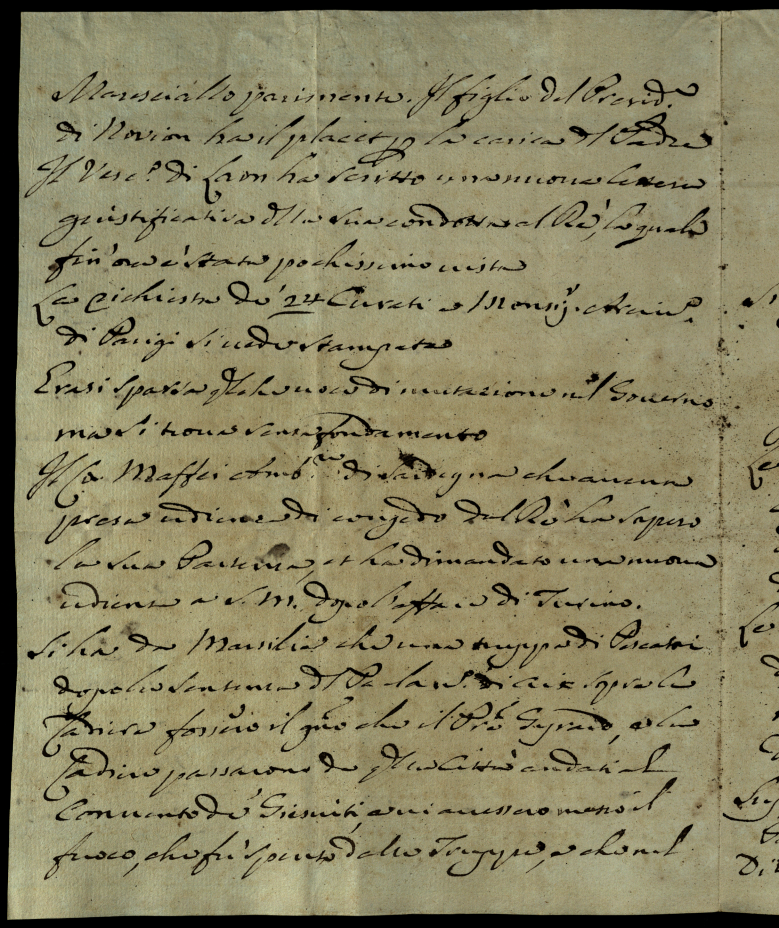 Maresciallo parimente. Il figlio del Presid.e
di Novion ha il placet p la carica del Padre
Il Vesc.o di Laon ha scritto una nuova lettera
giustificativa della sua condotta al Rè, la quale
fin' ora è stata pochissimo vista
La richiesta de' 24 Curati a Monsig.r Arciv.o
di Parigi si vede stampata
Erasi sparsa qualche voce di mutazione nel Governo
ma si trova senza fondamento
Il Co. Maffei Amb.re di Sardegna che aveva
presa udienza di congedo dal Rè ha sospeso
la sua Partenza, et ha dimandato una nuova
udienza a S. M. dopo l'affare di Torino.
Si ha da Marsilia che una truppa di Pescatori
dopo la sentenza del Parlam.to di Aix sopra la
Cadiere fossero il che il Pre Gyrard, e la
Cadiere passarono da quella Città andati al
Convento de' Giesuiti, e vi avessero messo il
fuoco, che fù spento dalle Truppe, e che nel